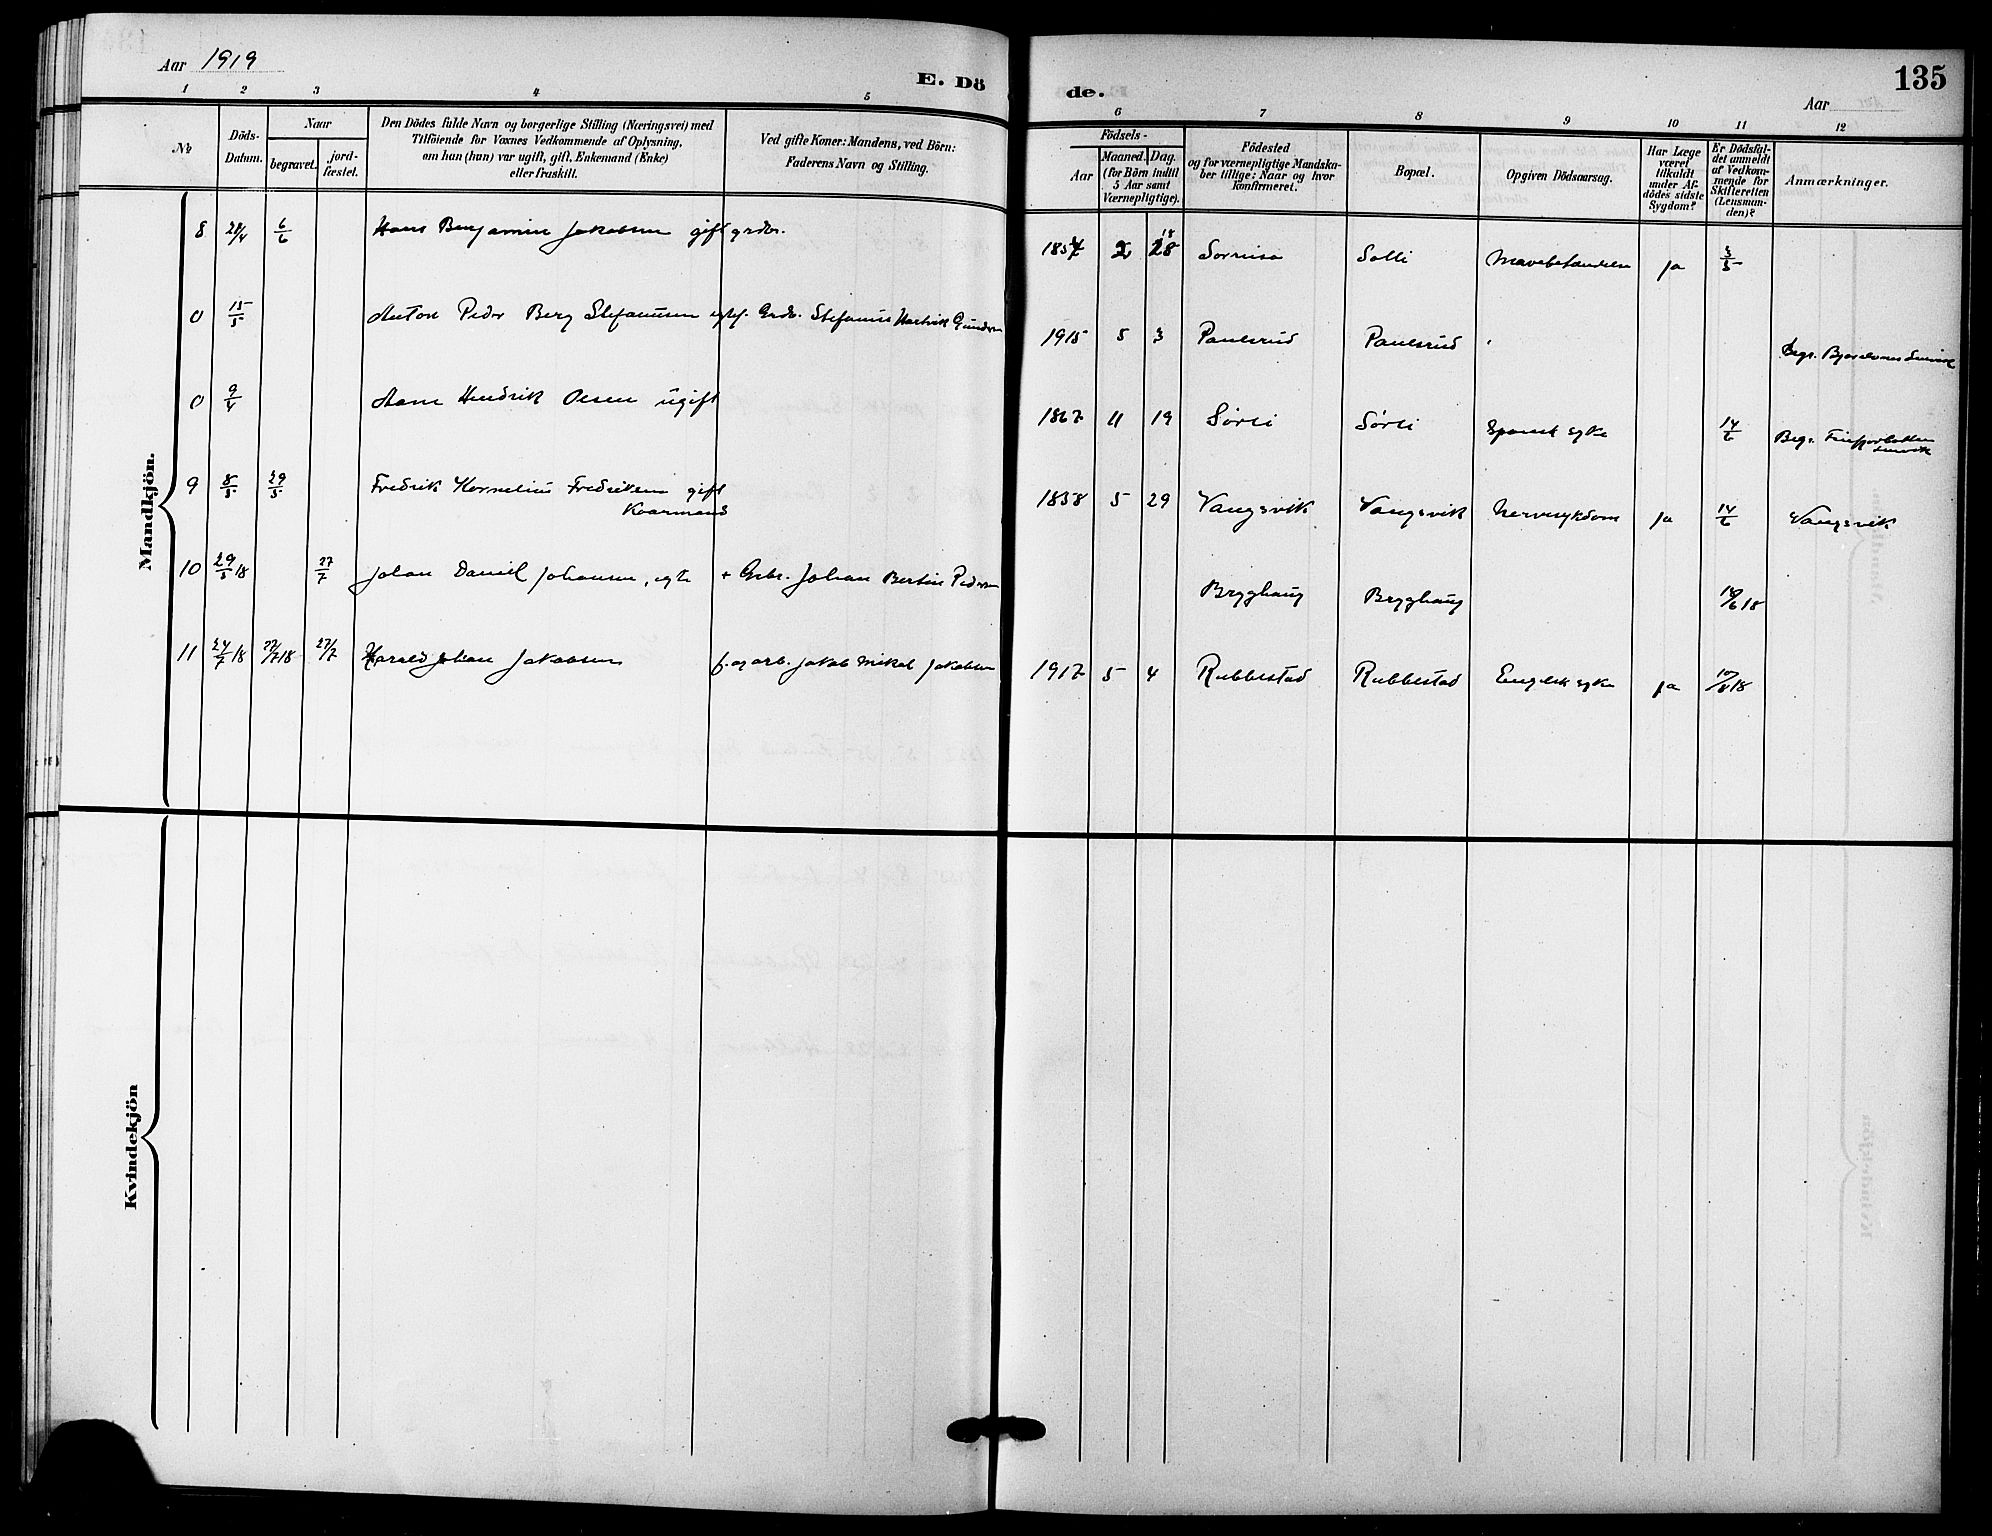 Aar 1919
E. Dö
de.
135
Aar
1 2 3 4 5
6 7 8 9 10 11 12
№
Döds-Datum.
Naar
begravet.
jord-fæstet.
Den Dödes fulde Navn og borgerlige Stilling (Næringsvei) med
Tilföiende for Voxnes Vedkommende af Oplysning,
om han (hun) var ugift, gift, Enkemand (Enke)
eller fraskilt.
Ved gifte Koner: Mandens, ved Börn:
Faderens Navn og Stilling.
Födsels-
Aar
Maaned. Dag.
(for Börn indtil
5 Aar samt
Værnepligtige).
Födested
og for værnepligtige Mandska-
ber tillige: Naar og hvor
konfirmeret.
Bopæl.
Opgiven Dödsaarsag.
Har Læge
været
tilkaldt
under Af-
dödes sidste
Sygdom?
Er Dödsfal-
det anmeldt
af Vedkom-
mende for
Skifteretten
(Lensman-
den)?
Anmærkninger.
Mandkjön.
8 28/4 6/6 Hans Benjamin Jakobsen gift grdbr. 1854 2 18 28 Sørreisa Solli ja 3/5
0 15/5 Anton Peder Berg Stefanusen Grdb. Stefanus Hartvik 1915 5 3 Paulsrud Paulsrud
0 9/4 Hans Hendrik Olsen ugift 1867 11 19 Sørli Sørli spansk syke 14/6 Begr. Finfjordbotten Lenvik
9 8/5 29/5 Fredrik Kornelius Fredriksen gift Kaarmand 1858 5 29 Vangsvik Vangsvik Nervesykdom ja 14/6 Vangsvik
10 29/5 18 27/7 Johan Daniel Johansen, egte + Grbr. Johan Bertin Pedersen Brygghaug Brygghaug 18/6 18
11 24/7 18 27/7 18 27/7 Harald Johan Jakobsen f. og arb. Jakob Mikal Jakobsen 1917 5 4 Rubbestad Rubbestad Engelsk syke ja 10/8 18
Kvindekjön